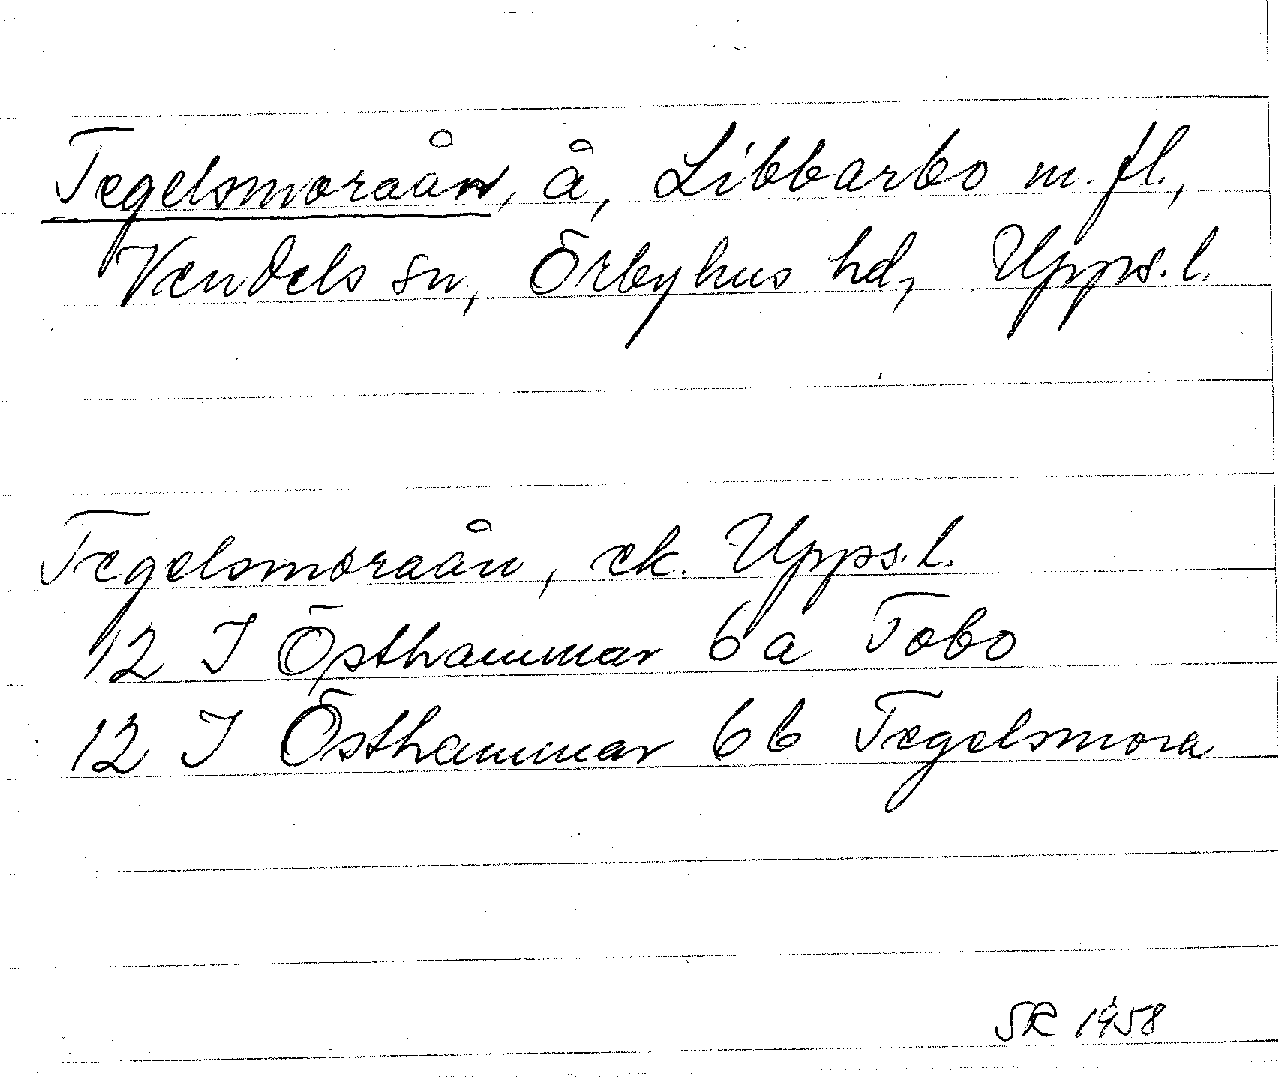 Tegelsmoraån, å, Libbarbo m. fl.,
Vendels sn, Örbyhus hd, Upps. l.
Tegelsmoraån, ek. Upps. l.
12 I Östhammar 6a Tobo
12 I Östhammar 6b Tegelsmora
SR 1958